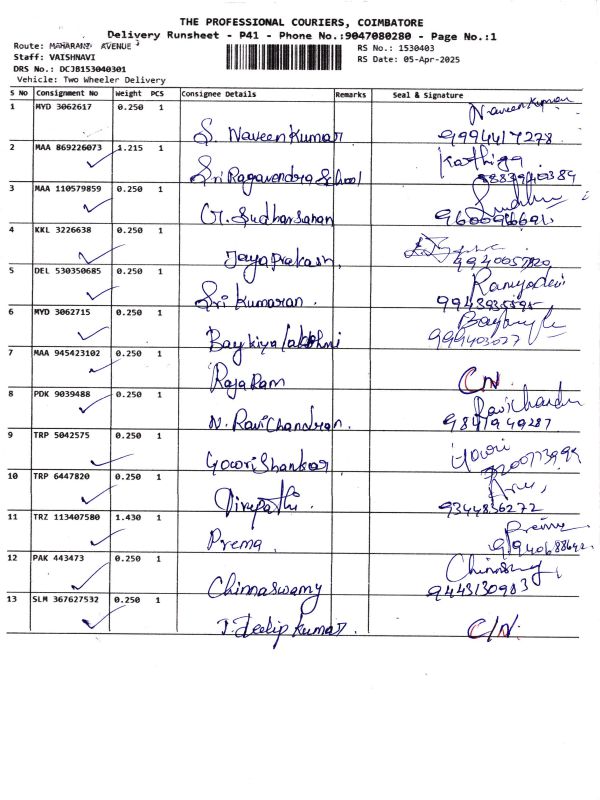 THE PROFESSIONAL COURIERS, COIMBATORE
Delivery Runsheet - P41 - Phone No.:9047080280 - Page No.:1
Route: MAHARANI AVENUE 3
RS No.: 1530403
Staff: VAISHNAVI
RS Date: 05-Apr-2025
DRS No.: DCJB153040301
Vehicle: Two Wheeler Delivery
S No Consignment No Weight PCS Consignee Details Remarks Seal & Signature
1 MYD 3062617 0.250 1 S. Naveen Kumar Naveen Kumar 9994417278
2 MAA 869226073 1.215 1 Sri Ragavendra School Karthiga
3 MAA 110579859 0.250 1 G. Sudharsanan
4 KKL 3226638 0.250 1 Jayaprakash,
5 DEL 530350685 0.250 1 Sri Kumaran. Ramyadevi
6 MYD 3062715 0.250 1 Baykiyalakshmi
7 MAA 945423102 0.250 1 RajaRam C/N.
8 PDK 9039488 0.250 1 N. RaviChandran. RaviChandra 9841949287
9 TRP 5042575 0.250 1 GowriShankar Gowri
10 TRP 6447820 0.250 1 9344836272
11 TRZ 113407580 1.430 1 Prema
12 PAK 443473 0.250 1 Chinnaswamy Chinnasamy 9443130983
13 SLM 367627532 0.250 1 J. Deelip Kumar. C/N.